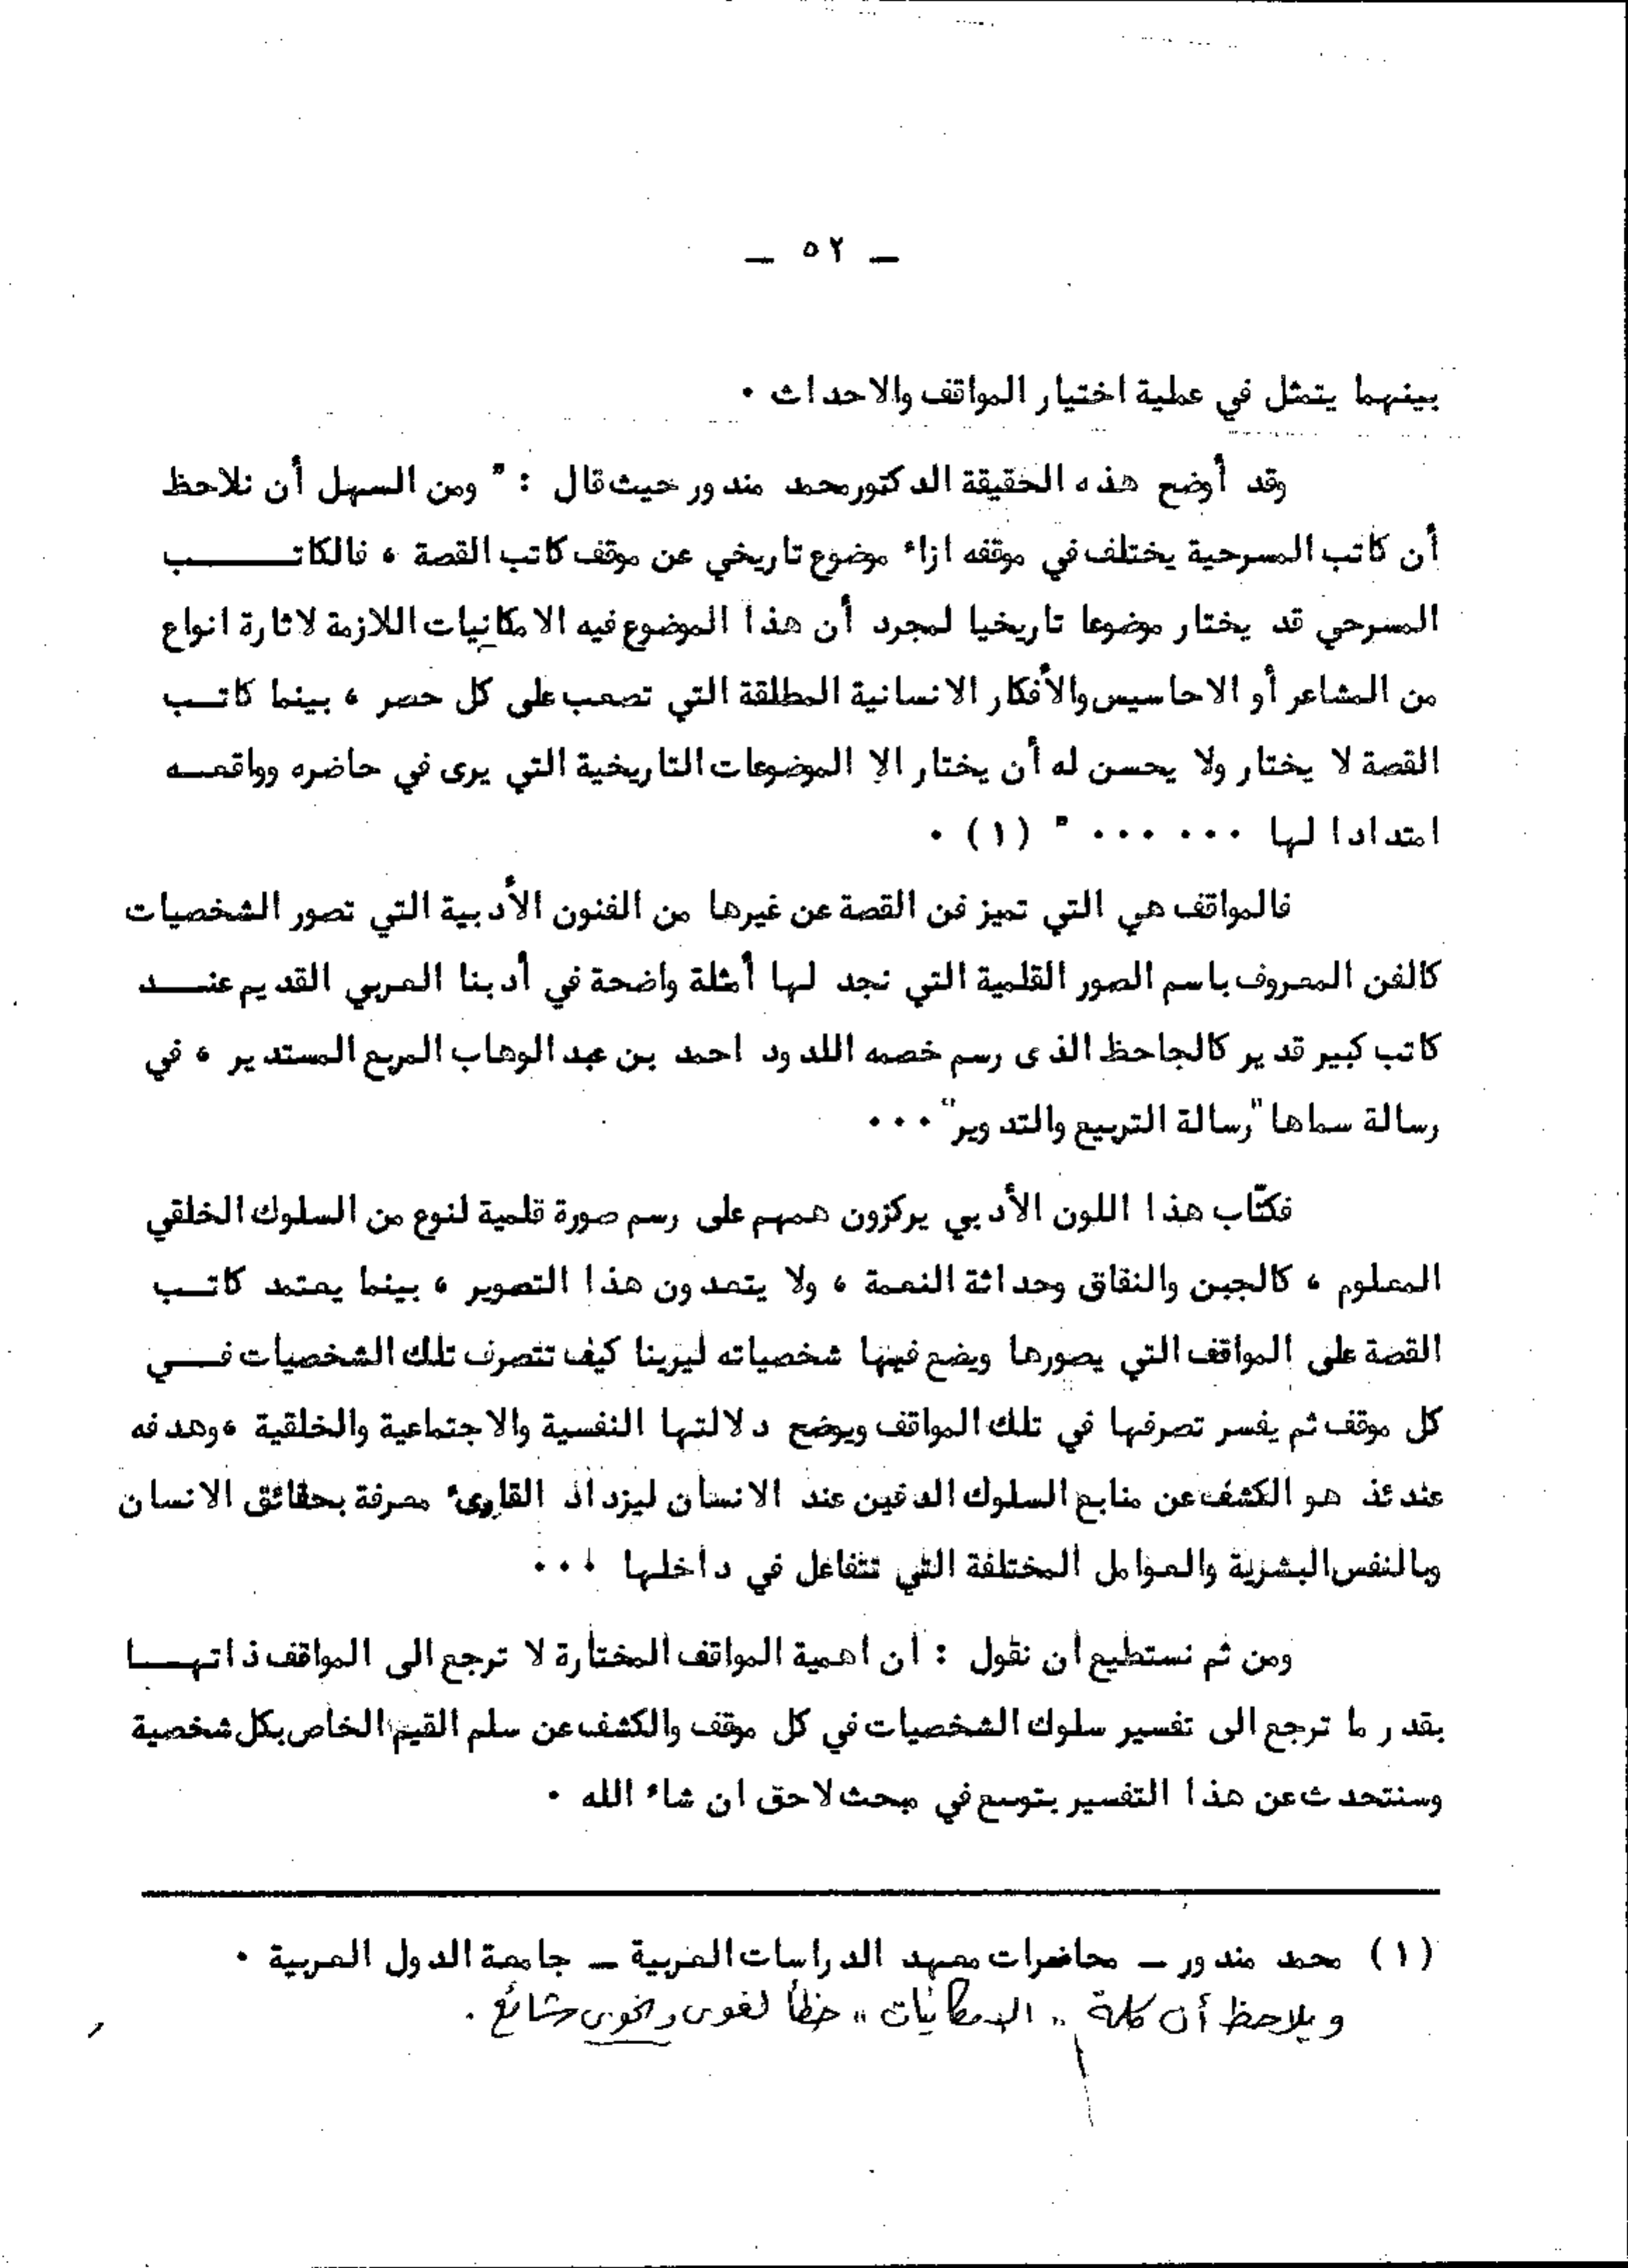 — ٥٢ —
بينهما يتمثل في عملية اختيار المواقف والاحداث .
وقد أوضح هذه الحقيقة الدكتور محمد مندور حيث قال : " ومن السهل أن نلاحظ
أن كاتب المسرحية يختلف في موقفه ازاء موضوع تاريخي عن موقف كاتب القصة ، فالكاتب
المسرحي قد يختار موضوعا تاريخيا لمجرد أن هذا الموضوع فيه الامكانيات اللازمة لاثارة انواع
من المشاعر أو الاحاسيس والأفكار الانسانية المطلقة التي تصعب على كل حصر ، بينما كاتب
القصة لا يختار ولا يحسن له أن يختار الا الموضوعات التاريخية التي يرى في حاضره وواقعه
امتدادا لها ٠٠٠ ٠٠٠ " (١) .
فالمواقف هي التي تميز فن القصة عن غيرها من الفنون الأدبية التي تصور الشخصيات
كالفن المعروف باسم الصور القلمية التي نجد لها أمثلة واضحة في أدبنا العربي القديم عند
كاتب كبير قدير كالجاحظ الذى رسم خصمه اللدود احمد بن عبد الوهاب المربع المستدير ، في
رسالة سماها "رسالة التربيع والتدوير" ...
فكتّاب هذا اللون الأدبي يركزون همهم على رسم صورة قلمية لنوع من السلوك الخلقي
المعلوم ، كالجبن والنقاق وحداثة النعمة ، ولا يتعدون هذا التصوير ، بينما يعتمد كاتب
القصة على المواقف التي يصورها ويضع فيها شخصياته ليرينا كيف تتصرف تلك الشخصيات في
كل موقف ثم يفسر تصرفها في تلك المواقف ويوضح دلالتها النفسية والاجتماعية والخلقية ، وهدفه
عندئذ هو الكشف عن منابع السلوك الدفين عند الانسان ليزداد القارىء معرفة بحقائق الانسان
وبالنفس البشرية والعوامل المختلفة التي تتفاعل في داخلها ...
ومن ثم نستطيع أن نقول : أن اهمية المواقف المختارة لا ترجع الى المواقف ذاتها
بقدر ما ترجع الى تفسير سلوك الشخصيات في كل موقف والكشف عن سلم القيم الخاص بكل شخصية
وسنتحدث عن هذا التفسير بتوسع في مبحث لاحق ان شاء الله .
(١) محمد مندور — محاضرات معهد الدراسات العربية — جامعة الدول العربية .
ويلاحظ أن كلمة " الامكانيات " خطأ لغوى ونحوى شائع .